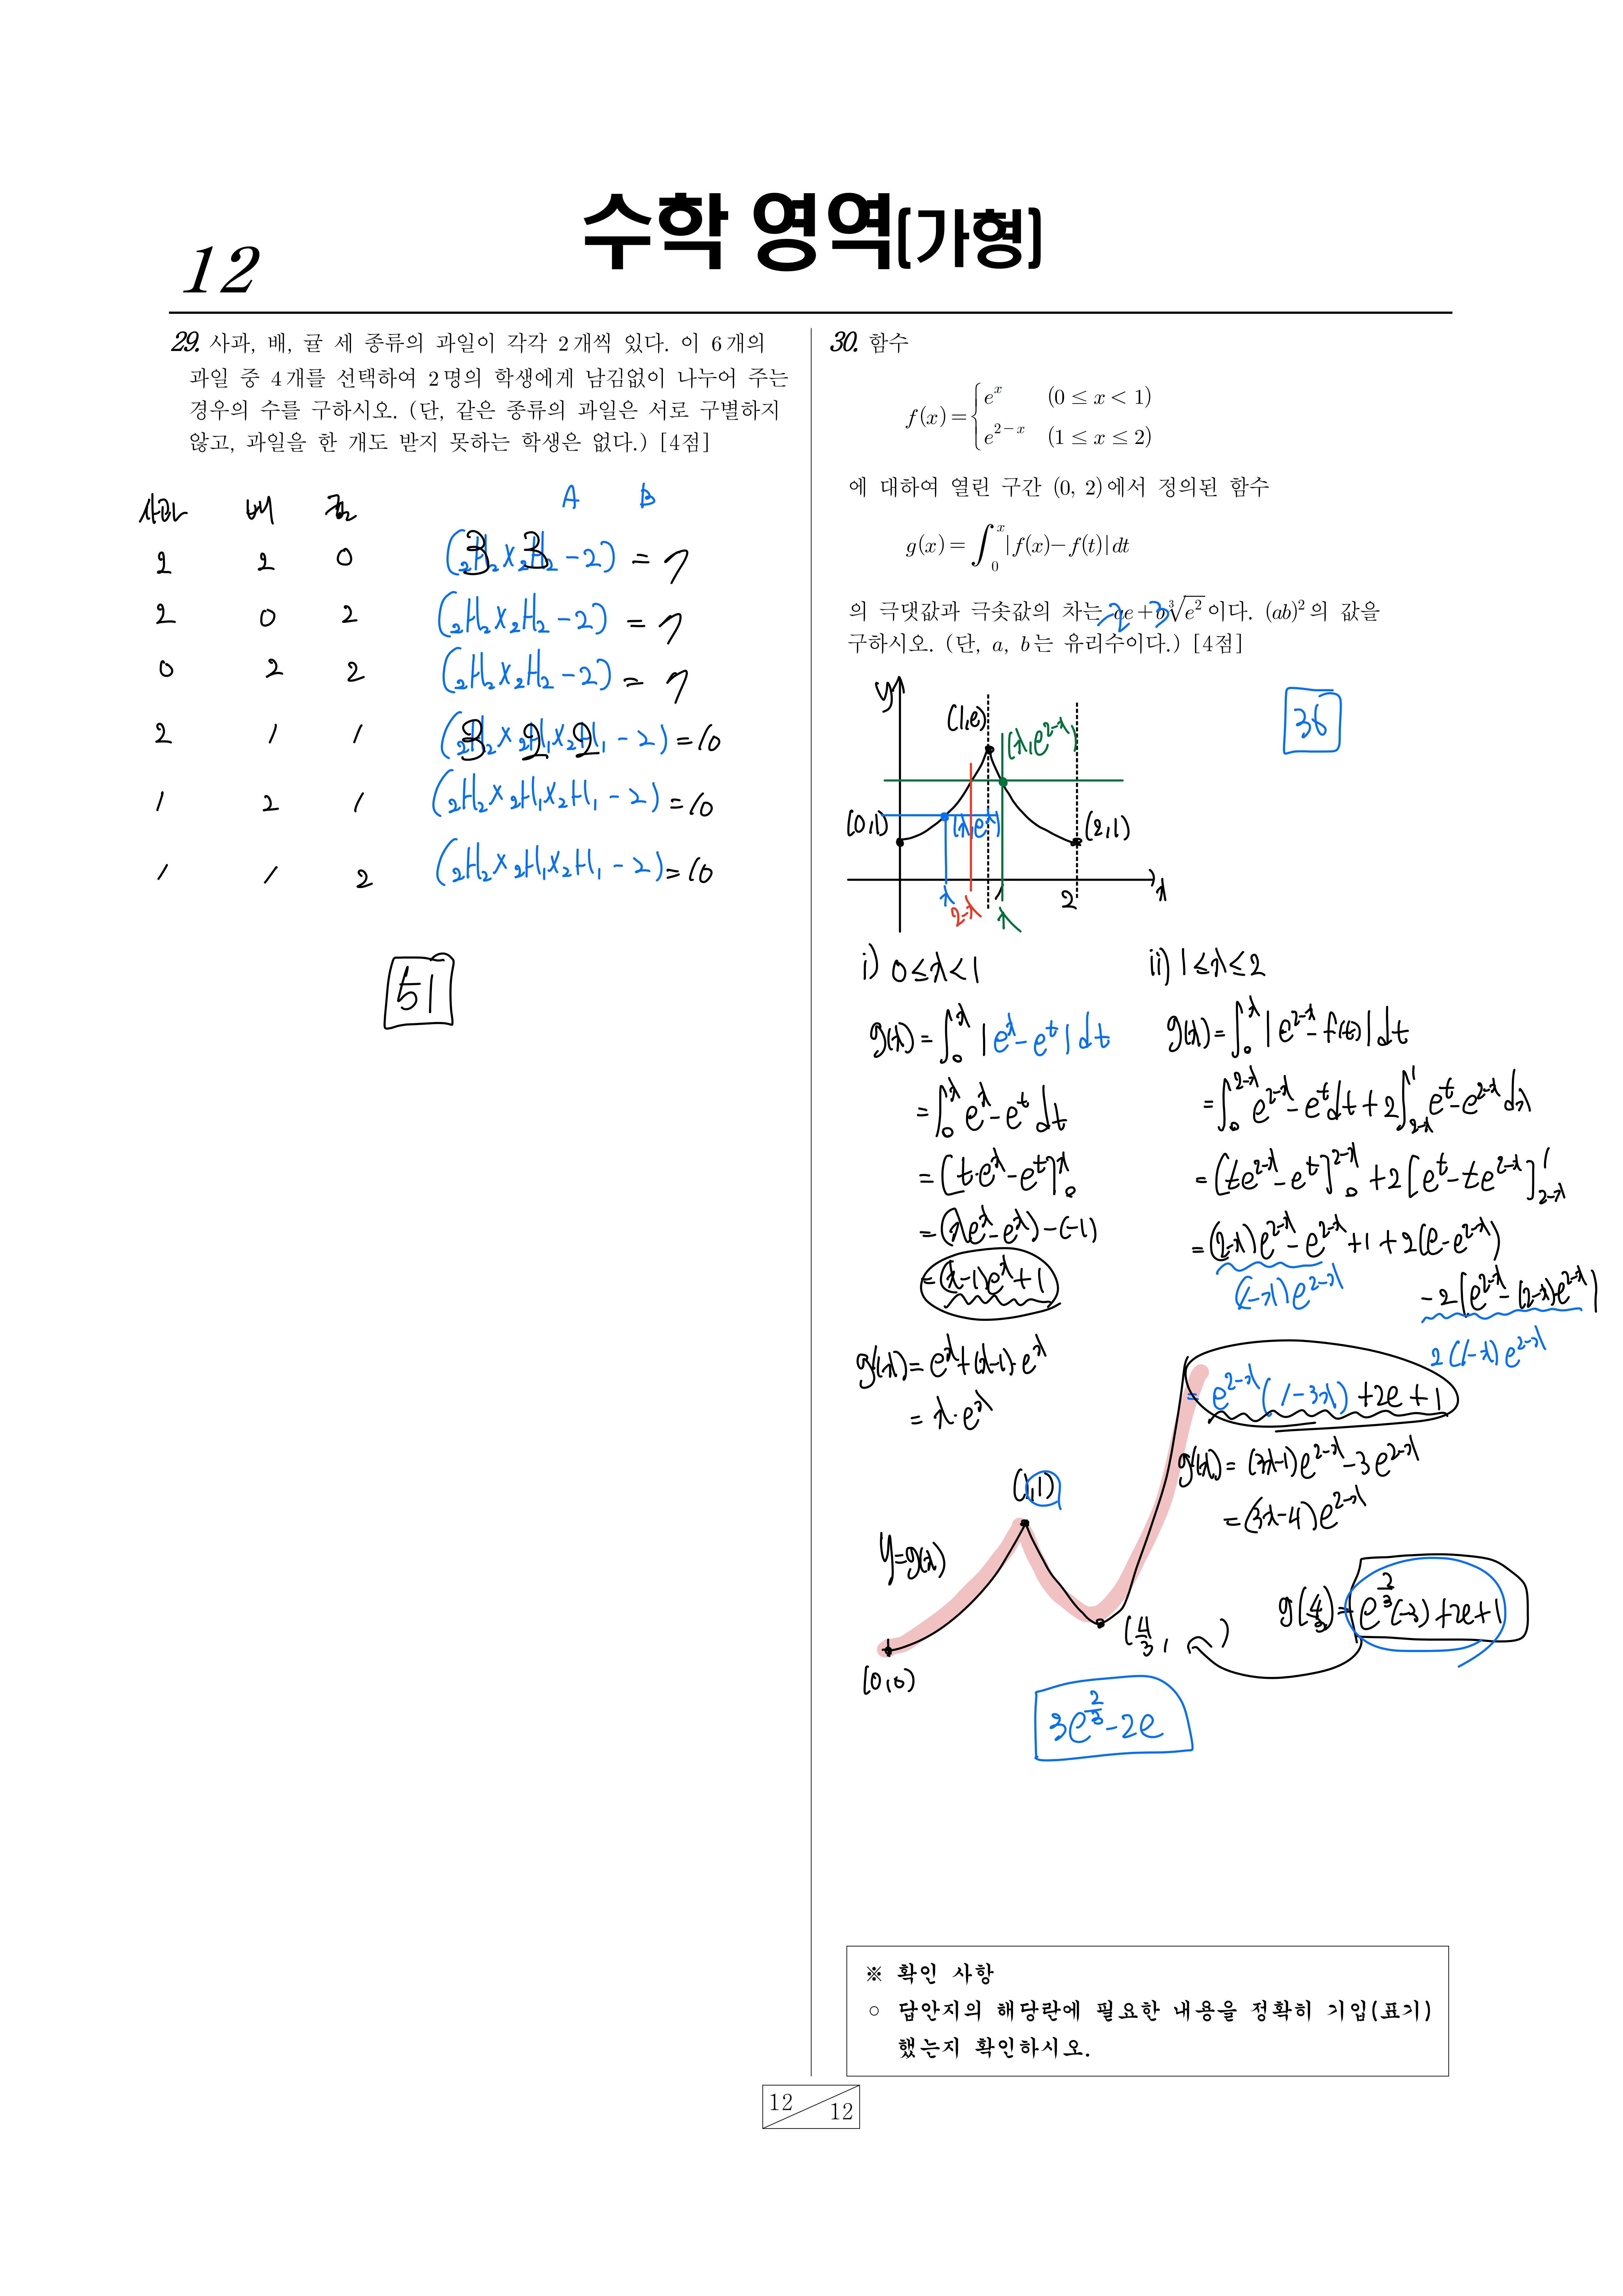 수학 영역(가형)
12
29. 사과, 배, 귤 세 종류의 과일이 각각 2개씩 있다. 이 6개의
과일 중 4개를 선택하여 2명의 학생에게 남김없이 나누어 주는
경우의 수를 구하시오. (단, 같은 종류의 과일은 서로 구별하지
않고, 과일을 한 개도 받지 못하는 학생은 없다.) [4점]
A B
사과 배 귤
2 2 0 (₂H₂×₂H₂-2) = 7
3 3
2 0 2 (₂H₂×₂H₂-2) = 7
0 2 2 (₂H₂×₂H₂-2) = 7
2 1 1 (₂H₂×₂H₁×₂H₁-2) = 10
3 2 2
1 2 1 (₂H₂×₂H₁×₂H₁-2) = 10
1 1 2 (₂H₂×₂H₁×₂H₁-2) = 10
51
30. 함수
f(x) = { e^x (0 ≤ x < 1)
e^{2-x} (1 ≤ x ≤ 2)
에 대하여 열린 구간 (0, 2)에서 정의된 함수
g(x) = ∫_0^x |f(x)-f(t)| dt
의 극댓값과 극솟값의 차는 ae+b∛e² 이다. (ab)²의 값을
-2 3
구하시오. (단, a, b는 유리수이다.) [4점]
36
y
(1,e)
(x,e^{2-x})
(0,1)
(x,e^x)
(2,1)
x 2-x 1 x 2 x
i) 0≤x<1
g(x) = ∫_0^x |e^x-e^t| dt
= ∫_0^x e^x-e^t dt
= [t·e^x-e^t]_0^x
= (xe^x-e^x)-(-1)
= (x-1)e^x+1
g'(x) = e^x+(x-1)·e^x
= x·e^x
ii) 1≤x≤2
g(x) = ∫_0^x |e^{2-x}-f(t)| dt
= ∫_0^{2-x} e^{2-x}-e^t dt + 2∫_{2-x}^1 e^t-e^{2-x} dx
= [te^{2-x}-e^t]_0^{2-x} + 2[e^t-te^{2-x}]_{2-x}^1
= (2-x)e^{2-x}-e^{2-x}+1+2(e-e^{2-x})
(1-x)e^{2-x}
-2(e^{2-x}-(2-x)·e^{2-x})
2(1-x)e^{2-x}
= e^{2-x}(1-3x)+2e+1
g'(x) = (3x-1)e^{2-x}-3e^{2-x}
= (3x-4)e^{2-x}
(1,1)
y=g(x)
g(4/3) = e^{2/3}(-3)+2e+1
(4/3, )
(0,0)
3e^{2/3}-2e
※ 확인 사항
○ 답안지의 해당란에 필요한 내용을 정확히 기입(표기)
했는지 확인하시오.
12
12